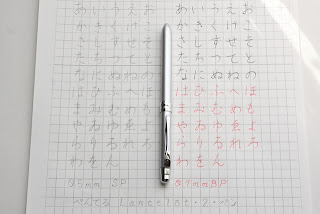 あいうえお あいうえお
かきくけこ かきくけこ
さしすせそ さしすせそ
たちつてと たちつてと
なにぬねの なにぬねの
はひふへほ はひふへほ
まみむめも まみむめも
やゐゆゑよ やゐゆゑよ
らりるれろ らりるれろ
わをん わをん
0.5mm SP 0.7mmBP
ぺんてる Lancelot・2・ペン